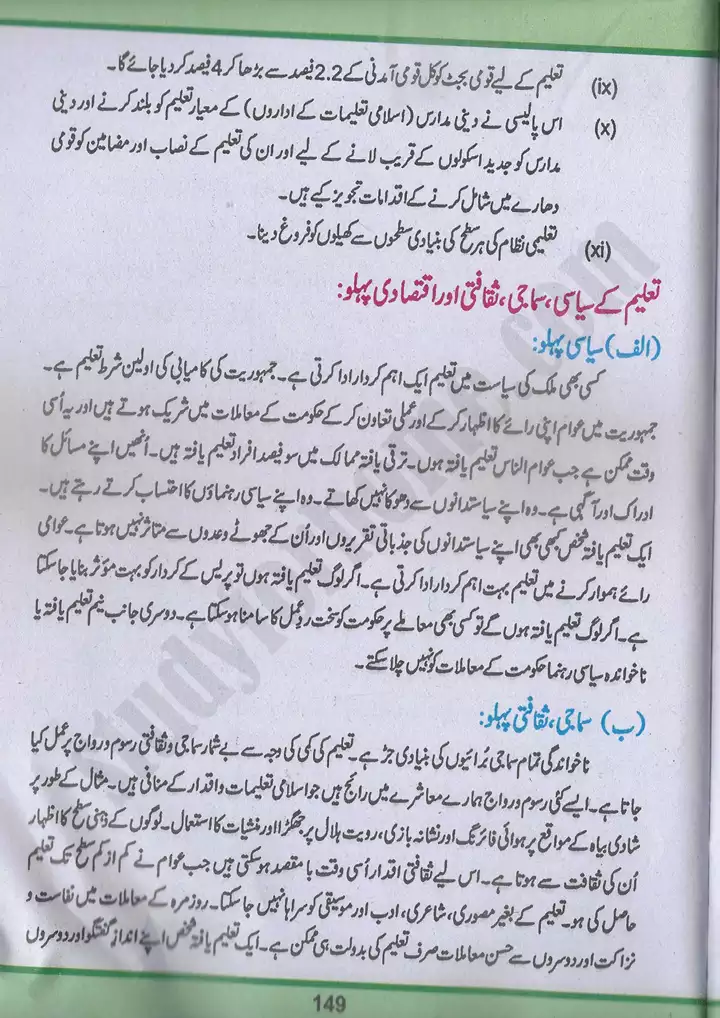 (ix) تعلیم کے لیے قومی بجٹ کو کل قومی آمدنی کے 2.2 فیصد سے بڑھا کر 4 فیصد کر دیا جائے گا۔
(x) اس پالیسی نے دینی مدارس (اسلامی تعلیمات کے اداروں) کے معیار تعلیم کو بلند کرنے اور دینی
مدارس کو جدید اسکولوں کے قریب لانے کے لیے اور ان کی تعلیم کے نصاب اور مضامین کو قومی
دھارے میں شامل کرنے کے اقدامات تجویز کیے ہیں۔
(xi) تعلیمی نظام کی ہر سطح کی بنیادی سطحوں سے کھیلوں کو فروغ دینا۔
تعلیم کے سیاسی، سماجی، ثقافتی اور اقتصادی پہلو:
(الف) سیاسی پہلو:
کسی بھی ملک کی سیاست میں تعلیم ایک اہم کردار ادا کرتی ہے۔ جمہوریت کی کامیابی کی اولین شرط تعلیم ہے۔
جمہوریت میں عوام اپنی رائے کا اظہار کر کے اور عملی تعاون کر کے حکومت کے معاملات میں شریک ہوتے ہیں اور یہ اُسی
وقت ممکن ہے جب عوام الناس تعلیم یافتہ ہوں۔ ترقی یافتہ ممالک میں سو فیصد افراد تعلیم یافتہ ہیں۔ اُنھیں اپنے مسائل کا
ادراک اور آگہی ہے۔ وہ اپنے سیاستدانوں سے دھوکا نہیں کھاتے۔ وہ اپنے سیاسی رہنماؤں کا احتساب کرتے رہتے ہیں۔
ایک تعلیم یافتہ شخص کبھی بھی اپنے سیاستدانوں کی جذباتی تقریروں اور اُن کے جھوٹے وعدوں سے متاثر نہیں ہوتا ہے۔ عوامی
رائے ہموار کرنے میں تعلیم بہت اہم کردار ادا کرتی ہے۔ اگر لوگ تعلیم یافتہ ہوں تو پریس کے کردار کو بہت مؤثر بنایا جا سکتا
ہے۔ اگر لوگ تعلیم یافتہ ہوں گے تو کسی بھی معاملے پر حکومت کو سخت ردِعمل کا سامنا ہو سکتا ہے۔ دوسری جانب نیم تعلیم یافتہ یا
ناخواندہ سیاسی رہنما حکومت کے معاملات کو نہیں چلا سکتے۔
(ب) سماجی، ثقافتی پہلو:
ناخواندگی تمام سماجی بُرائیوں کی بنیادی جڑ ہے۔ تعلیم کی کمی کی وجہ سے بے شمار سماجی و ثقافتی رسوم و رواج پر عمل کیا
جاتا ہے۔ ایسے کئی رسوم و رواج ہمارے معاشرے میں رائج ہیں جو اسلامی تعلیمات و اقدار کے منافی ہیں۔ مثال کے طور پر
شادی بیاہ کے مواقع پر ہوائی فائرنگ اور نشانہ بازی، رویت ہلال پر جھگڑا اور منشیات کا استعمال۔ لوگوں کے ذہنی سطح کا اظہار
اُن کی ثقافت سے ہوتا ہے۔ اس لیے ثقافتی اقدار اُسی وقت با مقصد ہو سکتی ہیں جب عوام نے کم از کم سطح تک تعلیم
حاصل کی ہو۔ تعلیم کے بغیر مصوری، شاعری، ادب اور موسیقی کو سراہا نہیں جا سکتا۔ روزمرہ کے معاملات میں نفاست و
نزاکت اور دوسروں سے حسن معاملات صرف تعلیم کی بدولت ہی ممکن ہے۔ ایک تعلیم یافتہ شخص اپنے انداز گفتگو اور دوسروں
149